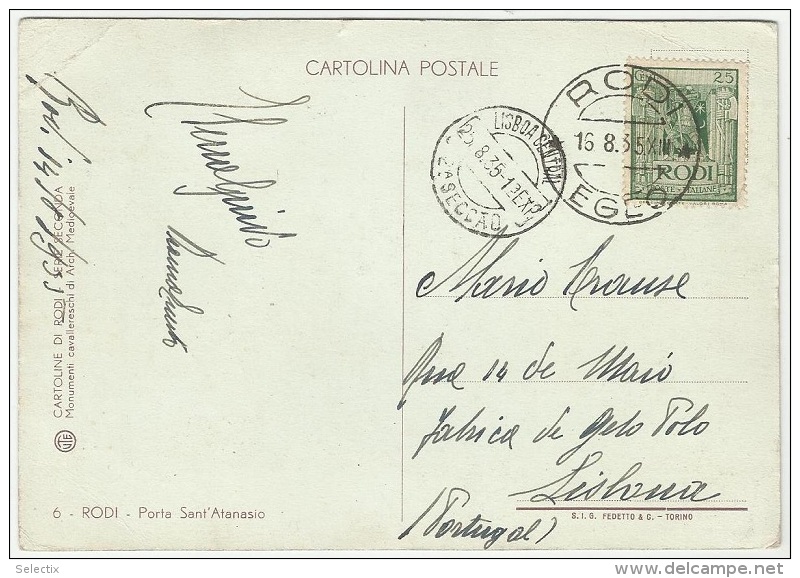 CARTOLINA POSTALE
RODI
16 8.35 XIII
EGEO
25
RODI
POSTE ITALIANE
LISBOA CENTRAL
23.8.35-13
2A SECCÃO
Rodi, 14/8/1935
Mario Krause
Rua 14 de Maio
Fabrica de Gelo Polo
Lisbona
(Portugal)
CARTOLINE DI RODI - SERIE SECONDA
Monumenti cavallereschi di Arch. Medioevale
6 - RODI - Porta Sant'Atanasio
S. I. G. FEDETTO & C. - TORINO
Selectix
delcampe.net